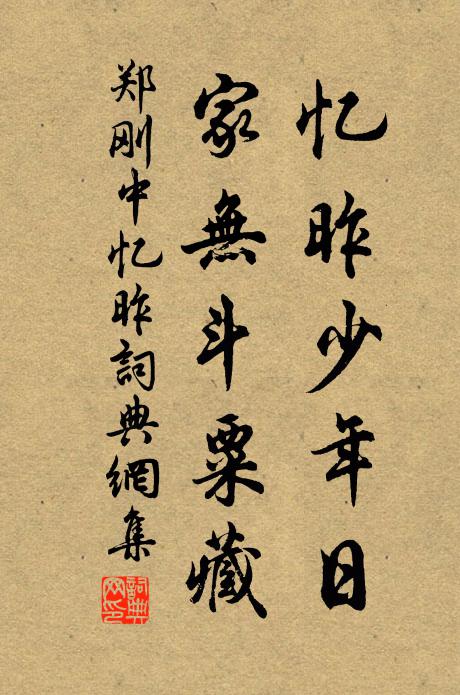 忆昨少年日
家無斗粟藏
郑刚中忆昨詞典網集
詞典网印